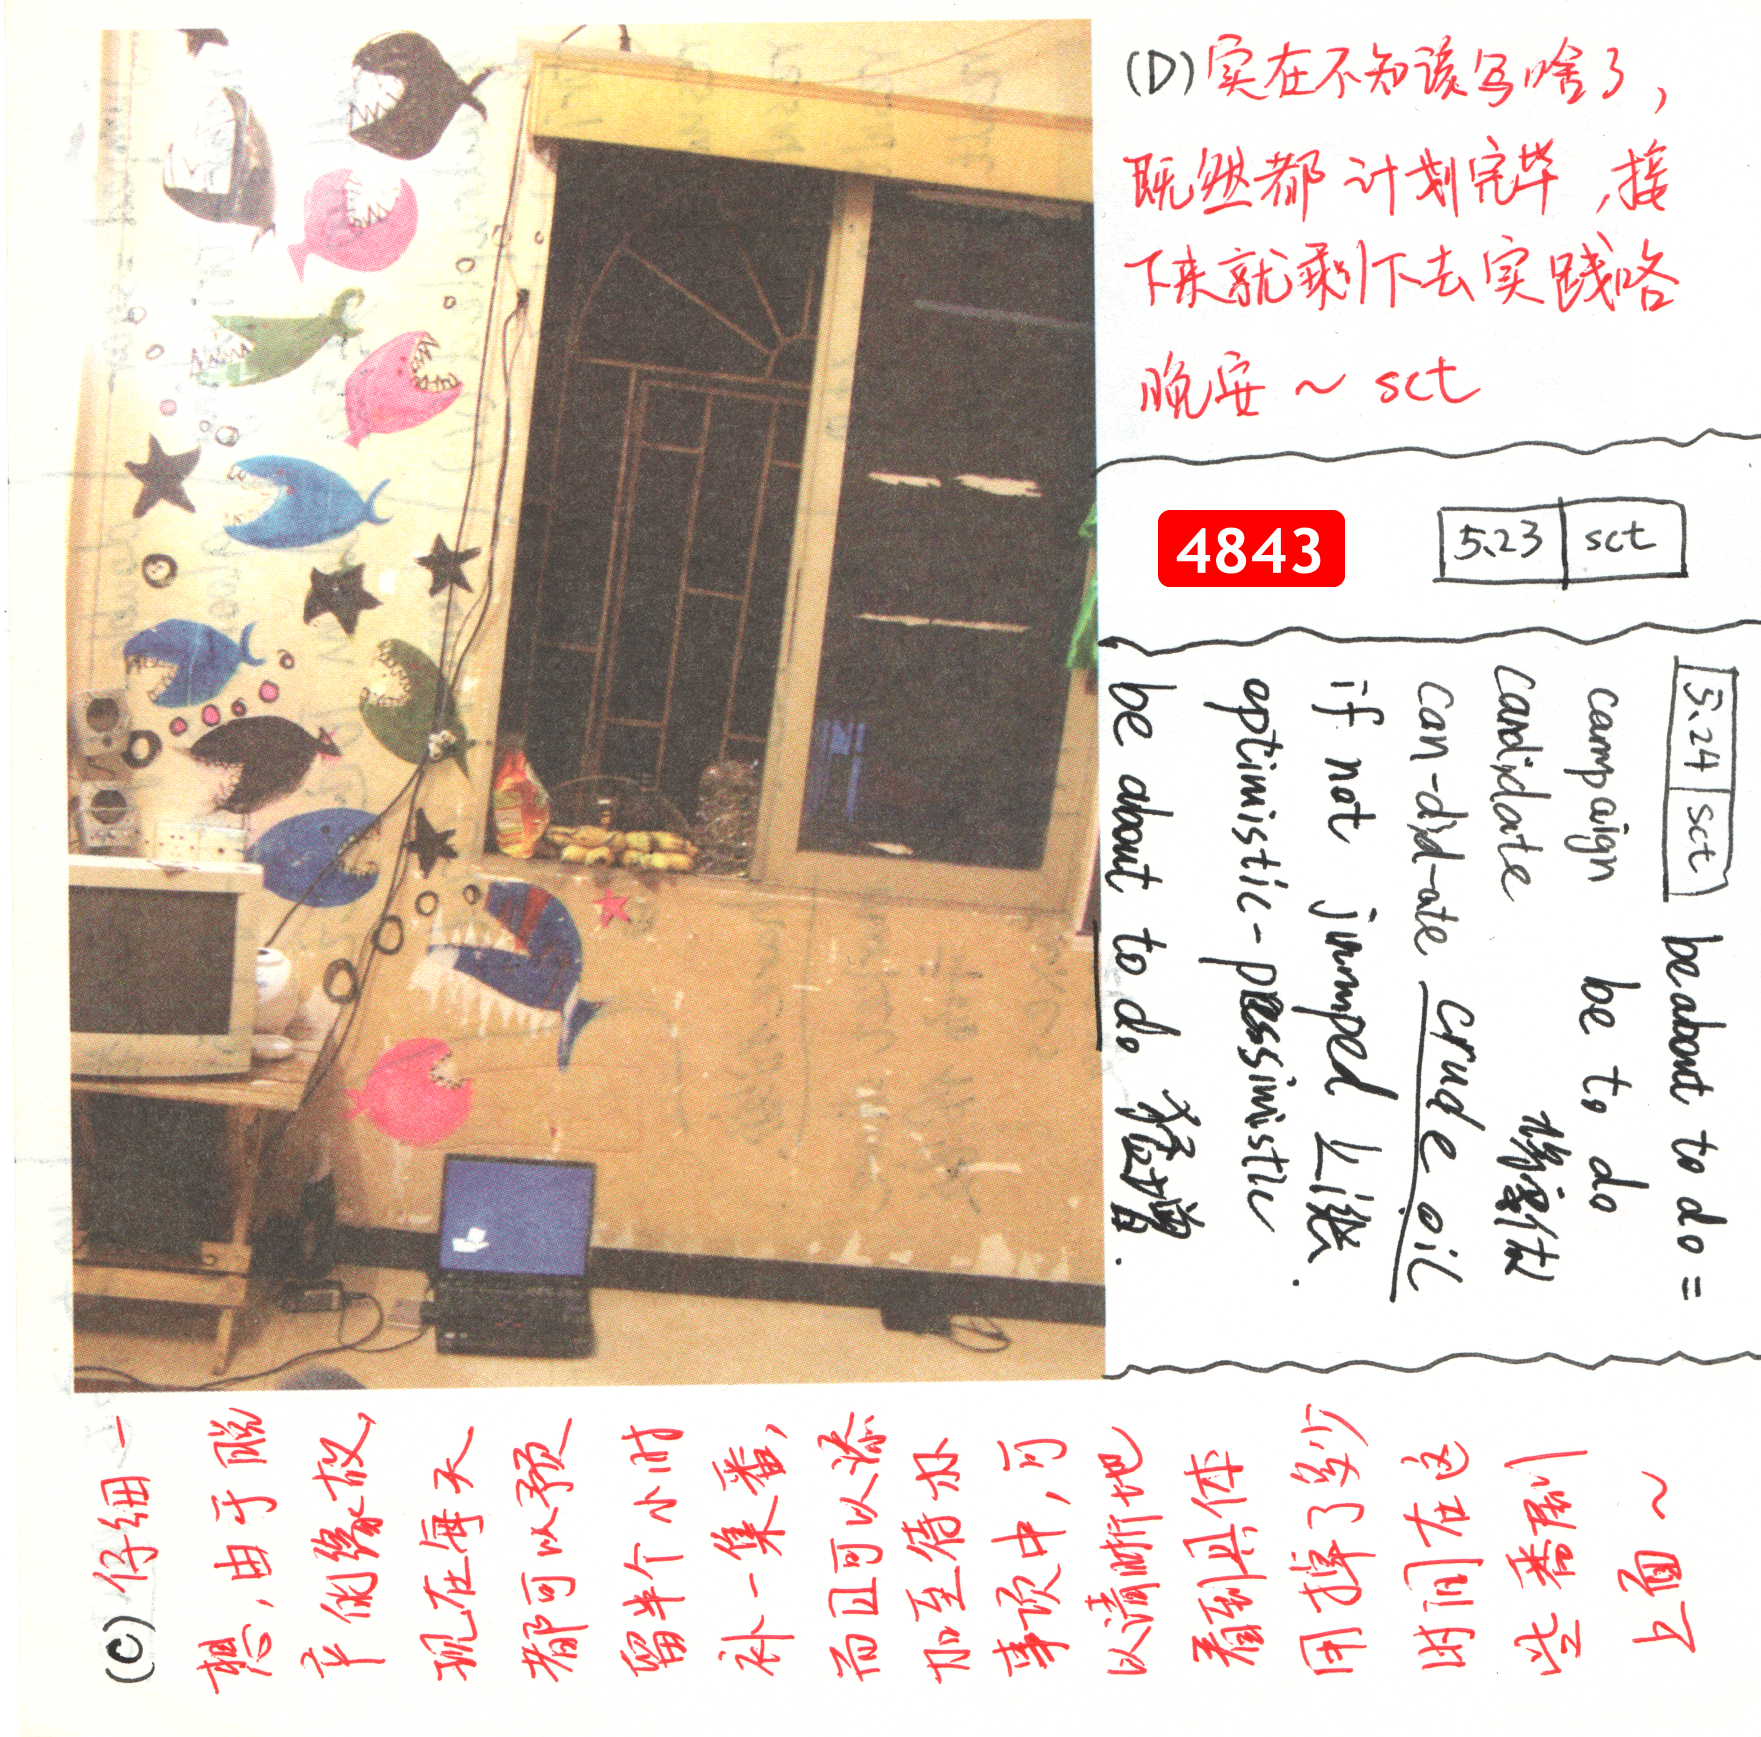 (D) 实在不知该写啥了,
既然都计划完毕,接
下来就剩下去实践咯
晚安~ sct
4843
5.23 sct
5.24 sct
be about to do =
campaign be to do
candidate
can-did-ate crude oil
if not jumped 上涨.
optimistic-pessimistic
be about to do 猛增.
(C) 仔细一
想,由于脱
产的缘故,
现在每天
都可以预
留半个小时
补一集番,
而且可以添
加至待办
事项中,可
以清晰地
看到具体
用掉了多少
时间在这
些番剧
上面~